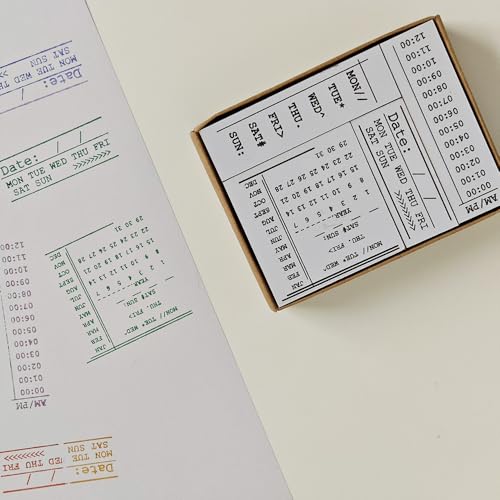 Date: / /
MON TUE WED THU FRI
SAT SUN >>
Date: / /
MON TUE WED THU FRI
SAT SUN >>>>>>>>>
MON// TUE* WED^
THU. FRI>
SAT# SUN:
1 2 3 4 5 6 7
8 9 10 11 12 13 14
15 16 17 18 19 20 21
22 23 24 25 26 27 28
29 30 31
JAN
FEB
MAR
APR
MAY
JUN
JUL
AUG
SEPT
OCT
NOV
DEC
AM/PM
00:00
01:00
02:00
03:00
04:00
05:00
06:00
07:00
08:00
09:00
10:00
11:00
12:00
/ /
WED THU FRI
>>>>>>>>>
Date:
MON TUE
SAT SUN
MON//
TUE*
WED^
THU.
FRI>
SAT#
SUN:
Date: / /
MON TUE WED THU FRI
SAT SUN >>>>>>>>>
AM/PM
00:00
01:00
02:00
03:00
04:00
05:00
06:00
07:00
08:00
09:00
10:00
11:00
12:00
MON// TUE* WED^
THU. FRI>
SAT# SUN:
YEAR
1 2 3 4 5 6 7
8 9 10 11 12 13 14
15 16 17 18 19 20 21
22 23 24 25 26 27 28
29 30 31
JAN
FEB
MAR
APR
MAY
JUN
JUL
AUG
SEPT
OCT
NOV
DEC